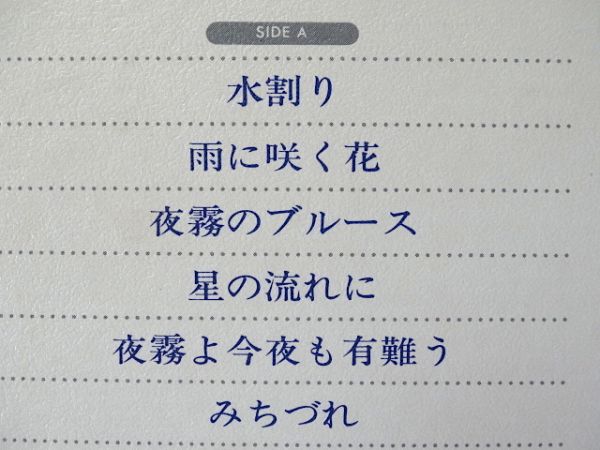 SIDE A
水割り
雨に咲く花
夜霧のブルース
星の流れに
夜霧よ今夜も有難う
みちづれ